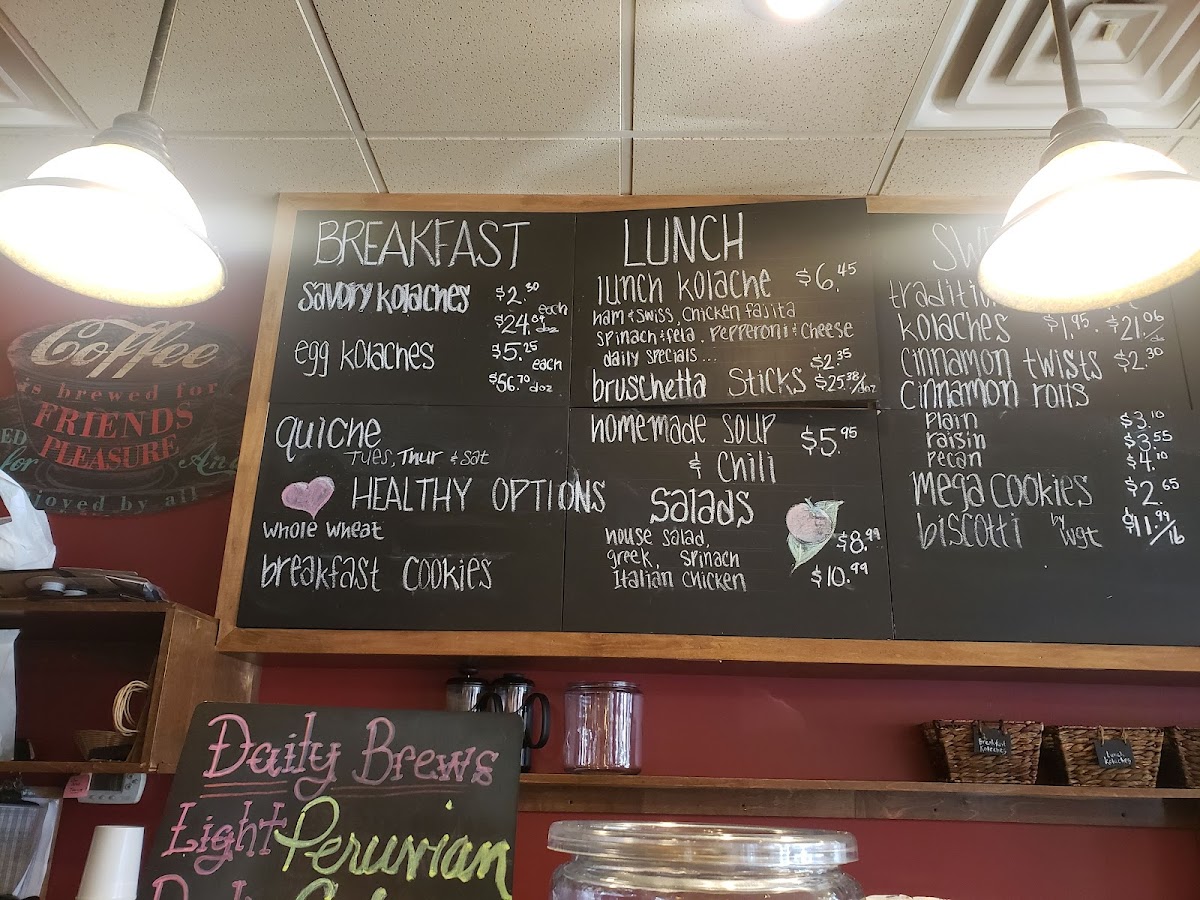 Coffee
is brewed for
FRIENDS
PLEASURE
And
joyed by all
BREAKFAST
savory kolaches $2.30 each
$24.84 doz
egg kolaches $5.25 each
$56.70 doz
quiche
Tues, Thur & Sat
HEALTHY OPTIONS
whole wheat
breakfast cookies
LUNCH
lunch kolache $6.45
ham & swiss, chicken fajita
spinach & feta, pepperoni & cheese
daily specials...
bruschetta sticks $2.35
$25.38/doz
homemade soup $5.95
& chili
salads
house salad, $8.99
greek, spinach
Italian chicken $10.99
SW
kolaches $1.95. $21.06
cinnamon twists $2.30
cinnamon rolls
plain $3.10
raisin $3.55
pecan $4.10
mega cookies $2.65
biscotti by wgt $11.99/lb
Daily Brews
Light Peruvian
Breakfast
Kolaches
Lunch
Kolaches